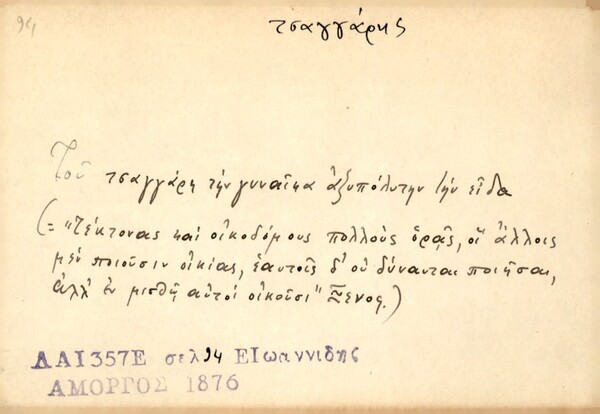 94
τσαγγάρης
Τοῦ τσαγγάρη τὴν γυναῖκα ἀξυπόλυτην τὴν εἶδα
(= "Τέκτονας καὶ οἰκοδόμους πολλοὺς ὁρᾷς, οἳ ἄλλοις
μὲν ποιοῦσιν οἰκίας, ἑαυτοῖς δ' οὐ δύνανται ποιῆσαι,
ἀλλ' ἐν μισθῇ αὐτοὶ οἰκοῦσι" Ξενοφ.)
ΛΑ Ι 357Ε σελ 94 Ε Ιωαννιδης
ΑΜΟΡΓΟΣ 1876